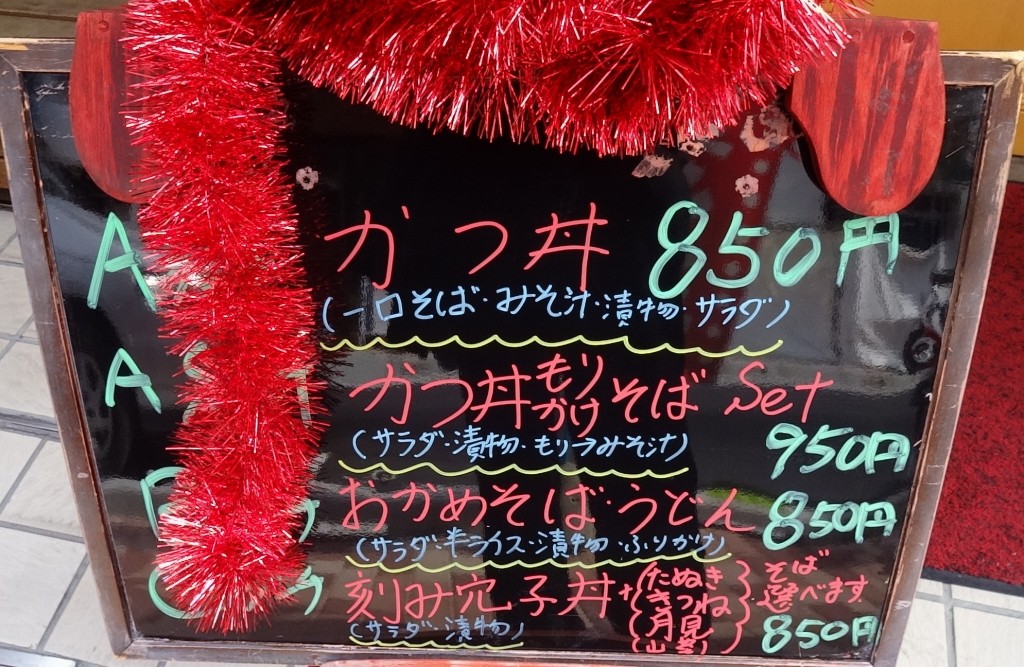 A かつ丼 850円
(一口そば・みそ汁・漬物・サラダ)
A かつ丼 もり かけ そば Set
(サラダ・漬物・もり→みそ汁) 950円
おかめそば・うどん 850円
(サラダ・半ライス・漬物・ふりかけ)
刻み穴子丼+(たぬき きつね 月見 山菜) そば 選べます
(サラダ・漬物) 850円